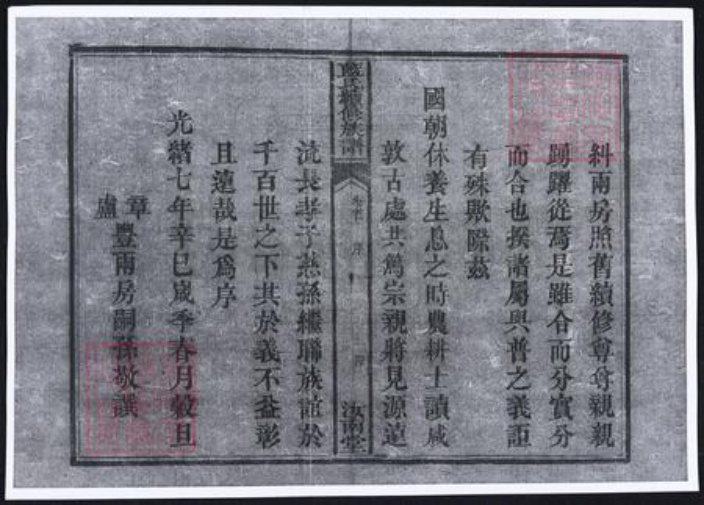 糾兩房照舊續修尊尊親親
踴躍從焉是雖合而分實分
而合也揆諸屬與普之義詎
有殊歟際茲
國朝休養生息之時農耕士讀咸
敦古處共篤宗親將見源遠
藍氏續修族譜
卷首 序
汝南堂
流長孝子慈孫繼聯族誼於
千百世之下其於義不益彰
且遠哉是為序
光緒七年辛巳歲季春月穀旦
章
廬
豐兩房嗣孫敬譔